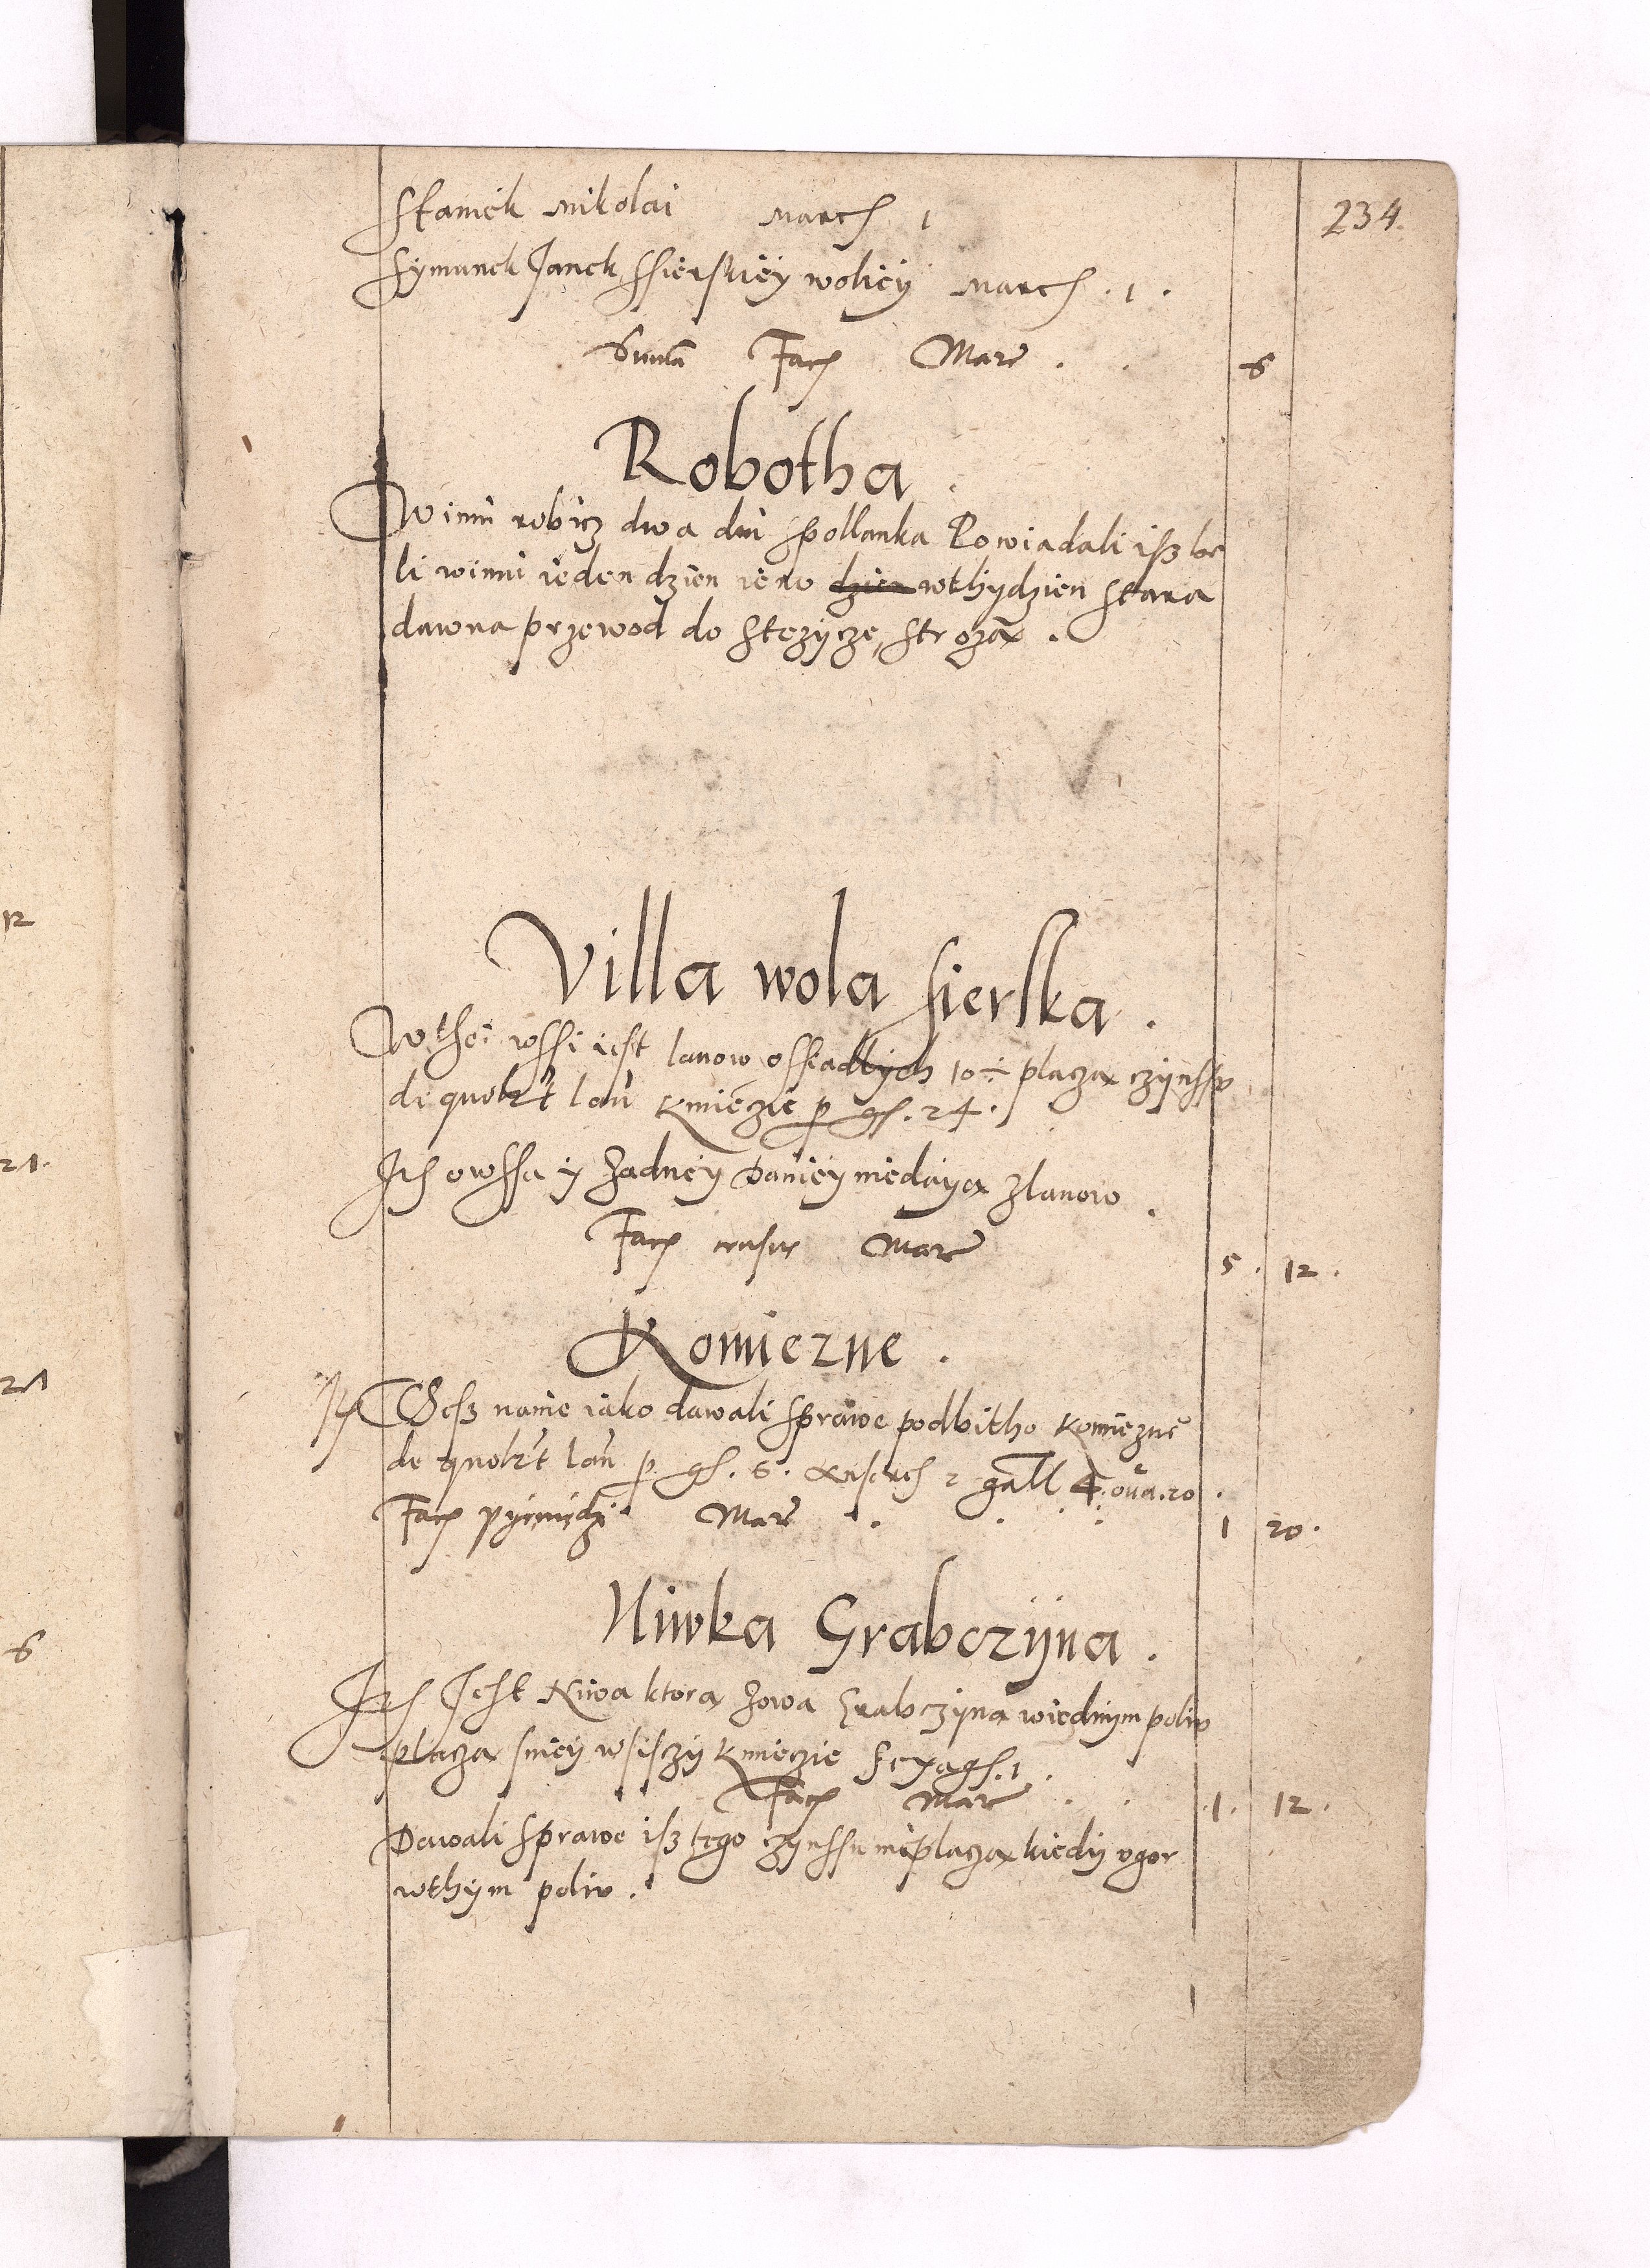 234.
Staniek Mikolai March 1
Symunek Janek Ssierskiey woliey March . 1 .
Suma Facit Marc . . 6
Robotha .
Winni robicz dwa dni spollanka Powiadali isz be
li winni ieden dzien ieno dzien wthydzien stara
dawna przewod do Stezycze, stroza .
Villa wola sierska .
W thei wssi iest lanow ossiadlych 10 ÷ placza czynssv
de quolibet lan kmieczie p gs. 24.
Ith owssa y zadney Daniey niedaya zlanow .
Facit census Marc 5 . 12 .
Komiezne .
It Czesz nanie iako dawali sprawe podbitho komiezne
de quolibet lan p gs. 6. 2 gall 4. ova. 20 .
Facit pyeniedzi Marc . . . 1 20.
Niwka Grabczyna .
Ith Jest Niwa ktora zowa Grabczyna wiednym poliv
placza sniey wsiszy kmieczie sexags. 1 .
Facit Marc . . 1. 12.
Dawali sprawe isz tego czynssu nieplacza kiedy vgor
wthym poliv .
12
21.
21
6